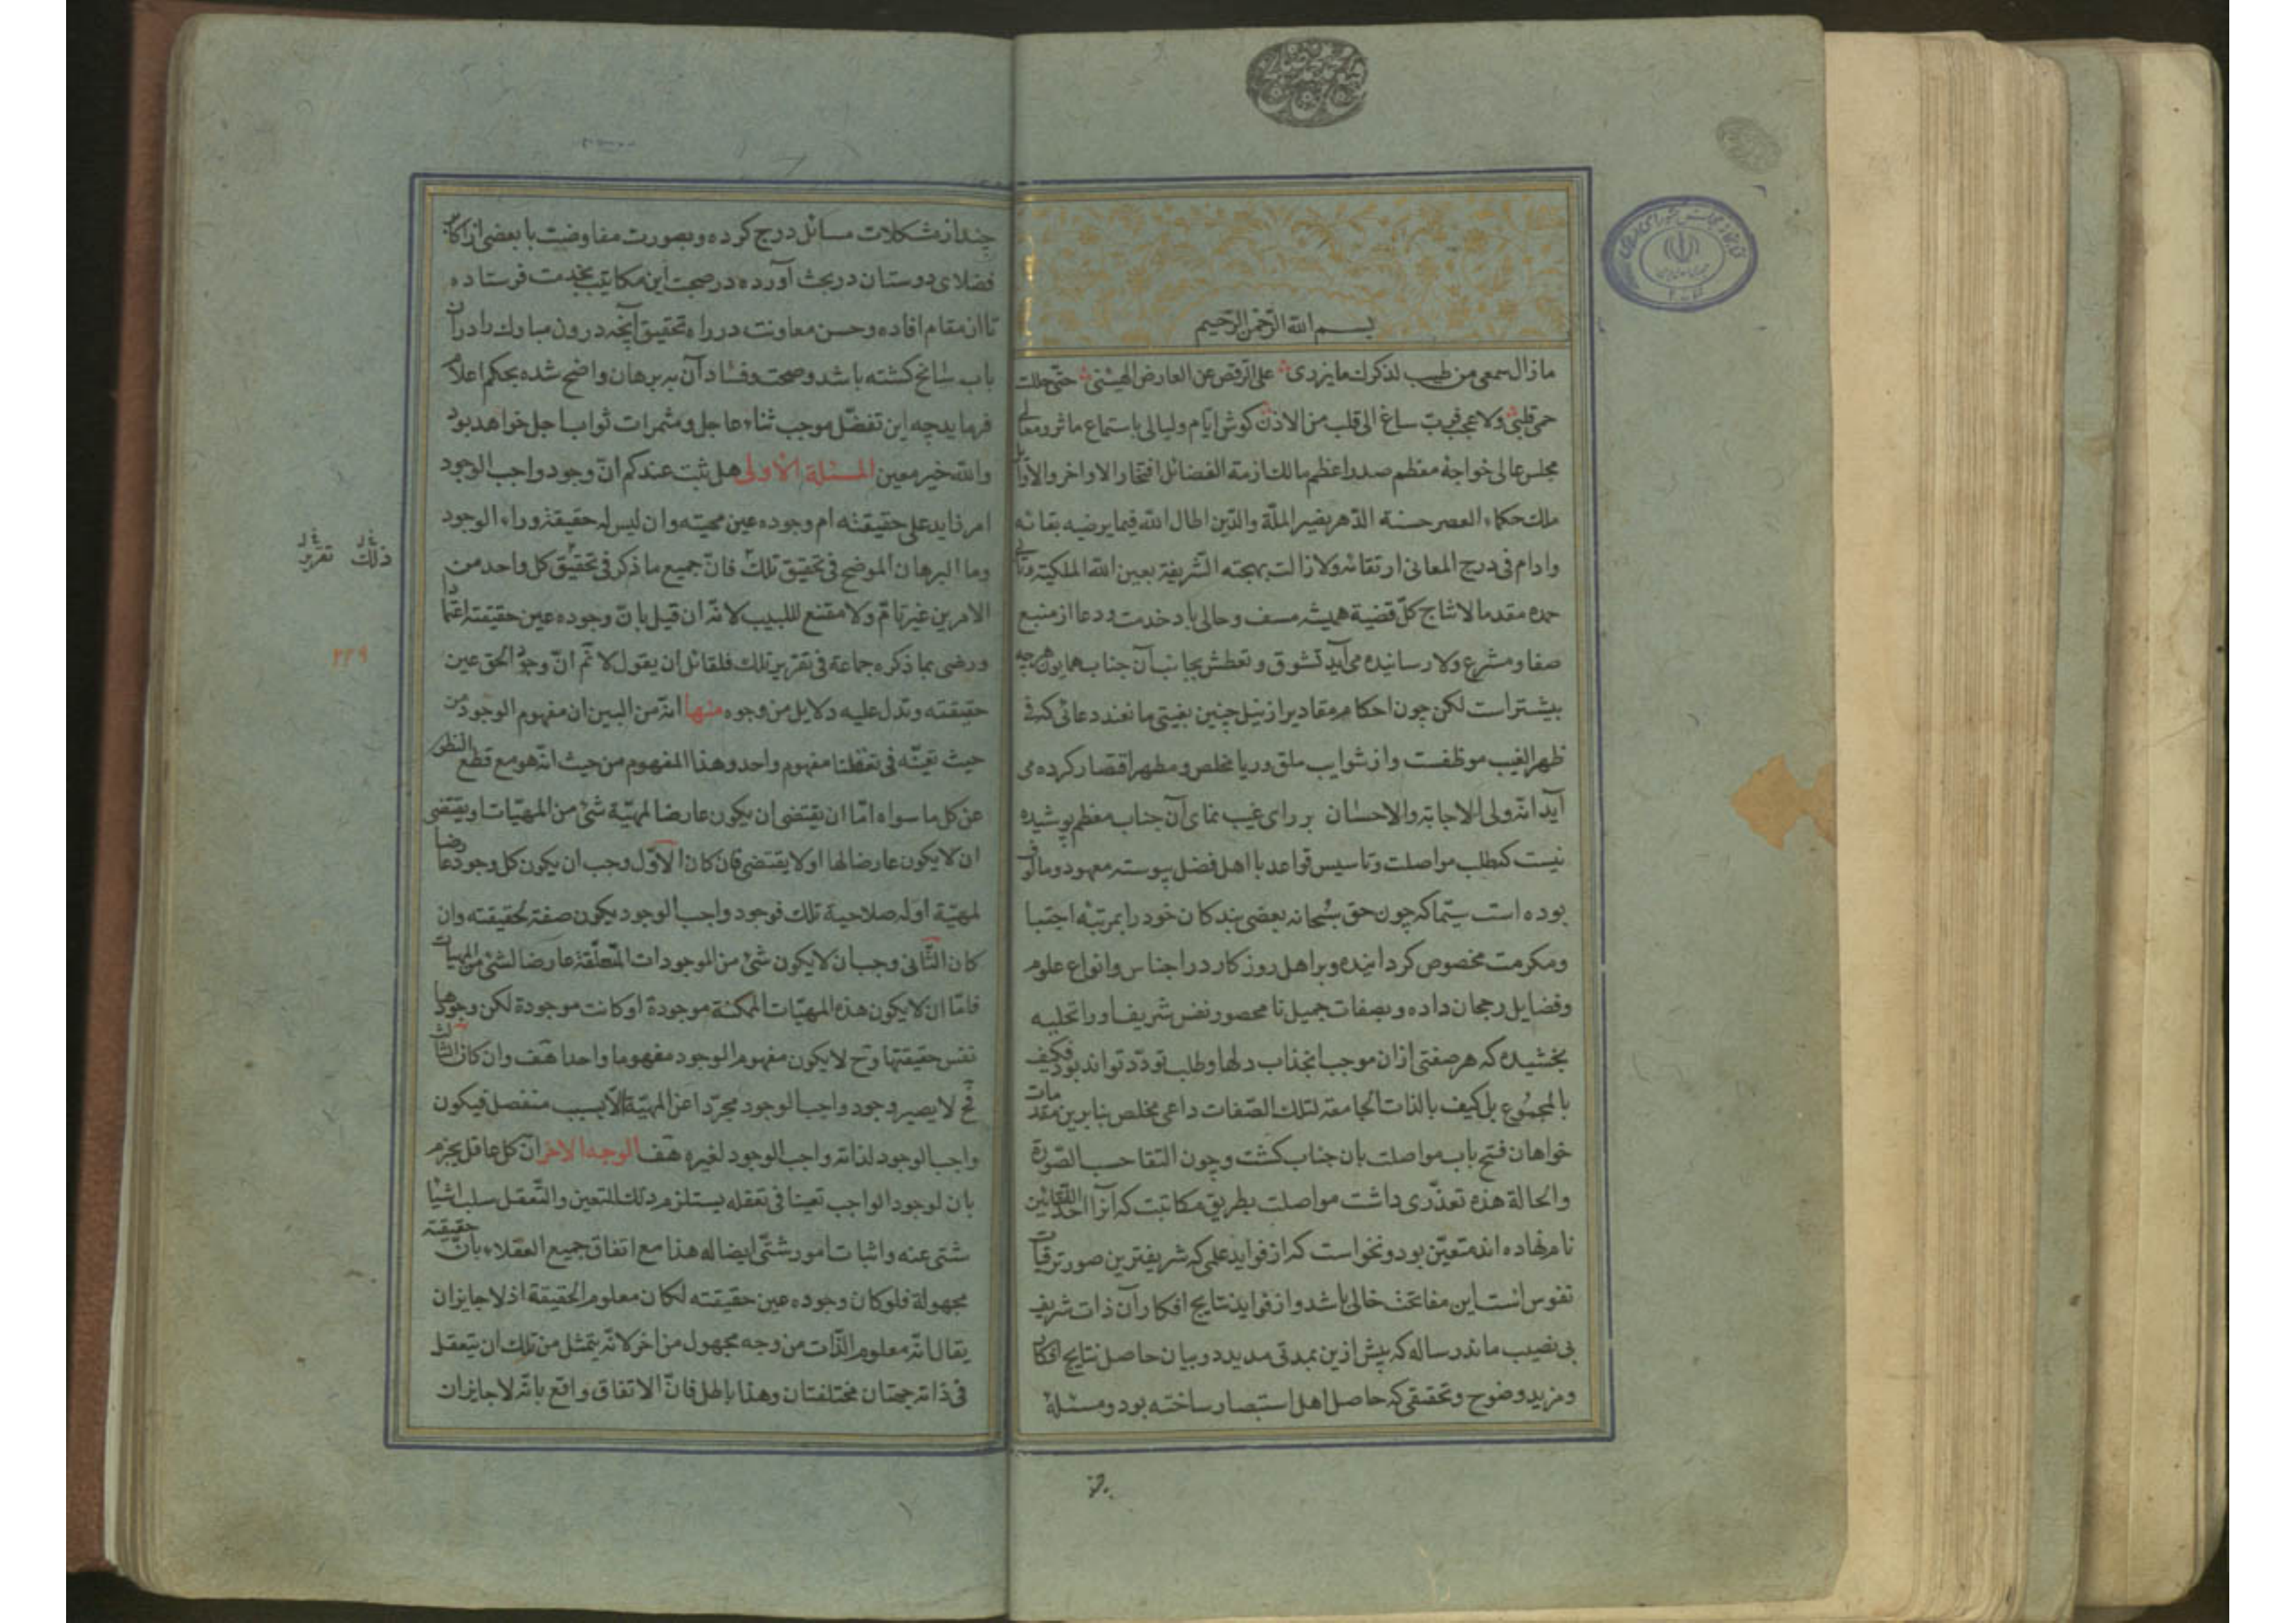 بسم الله الرحمن الرحيم
ما زال سمعی من طیب لذکرك ما یزری علی الرقص عن العارض الهتنی حتی حللت
حمی قلبی ولا عجب فرب ساغ الی قلب من الاذن کوش ایام ولیالی باستماع ماثر ومعالی
مجلس عالی خواجهٔ معظم صدر اعظم مالك ازمة الفضائل افتخار الاواخر والاوایل
ملك حکماء العصر حسنة الدهر نصیر الملّة والدّین اطال الله فیما یرضیه بقائه
وادام فی درج المعانی ارتقائه ولا زالت بهجته الشریفة بعین الله الملکیة
حمده مقدما لانتاج کلّ قضیة همیشه مسف وحالی باد خدمت ودعا از منبع
صفا ومشرع ولا رسانیده می آید تشوق وتعطش بجانب آن جناب همایون هر چه
بیشتر است لکن چون احکام مقادیر از نیل چنین بغیتی مانعند دعائی که فی
ظهر الغیب موظفت واز شوایب ملق وریا مخلص ومطهر اقتصار کرده می
آید انّه ولی الاجابة والاحسان بر رای غیب نمای آن جناب معظم پوشیده
نیست که طلب مواصلت وتاسیس قواعد با اهل فضل پیوسته معهود ومالوف
بوده است سیّما که چون حق سبحانه بعضی بندکان خود را بمرتبهٔ اجتبا
ومکرمت مخصوص کردانیده وبر اهل روز کار در اجناس وانواع علوم
وفضایل رجحان داده وبصفات جمیل نا محصور نفس شریف او را تحلیه
بخشیده که هر صفتی ازان موجب انجذاب دلها وطلب تودّد تواند بود فکیف
بالمجموع بل کیف بالذات الجامعة لتلك الصّفات داعی مخلص بنابرین مقدمات
خواهان فتح باب مواصلت بان جناب کشت وچون التقا حسب الصّورة
والحالة هذه تعذّری داشت مواصلت بطریق مکاتبت که آنرا احد اللقائین
نام نهاده اند متعیّن بود ونخواست که از فواید علمی که شریفترین صور ترقیات
نفوس انست این مفاتحت خالی باشد واز فواید نتایج افکار آن ذات شریف
بی نصیب ماند رساله که پیش ازین بمدتی مدید در بیان حاصل نتایج افکار
ومزید وضوح وتحقیقی که حاصل اهل استبصار ساخته بود ومسئلهٔ
چند از مشکلات مسائل درج کرده وبصورت مفاوضت با بعضی از اکابر
فضلای دوستان در بحث آورده در صحبت این مکاتیب بخدمت فرستاده
تا از مقام افاده وحسن معاونت در راه تحقیق آنچه درون مبارك را در آن
باب سانح کشته باشد وصحت وفساد آن ببرهان واضح شده بحکم اعلام
فرماید چه این تفضّل موجب ثناء عاجل ومثمرات ثواب اجل خواهد بود
والله خیر معین المسئلة الاولی هل ثبت عندکم انّ وجود واجب الوجود
امر زاید علی حقیقته ام وجوده عین مهیته وان لیس له حقیقة وراء الوجود
وما البرهان الموضح فی تحقیق تلك فانّ جمیع ما ذکر فی تحقیق کل واحد من
الامرین غیر تامّ ولا مقنع للبیب لانّه ان قیل بانّ وجوده عین حقیقته اعتمادا
ورضی بما ذکره جماعة فی تقریر تلك فلقائل ان یقول لا نم انّ وجود الحق عین
حقیقته وتدل علیه دلایل من وجوه منها انّه من البین ان مفهوم الوجود من
حیث تعیّنه فی تعقلنا مفهوم واحد وهذا المفهوم من حیث انّه هو مع قطع النظر
عن کل ما سواه امّا ان یقتضی ان یکون عارضا لمهیّة شیٔ من المهیّات او یقتضی
ان لا یکون عارضا لها او لا یقتضی فان کان الاوّل وجب ان یکون کل وجود عارضا
لمهیّة اوله صلاحیة تلك فوجود واجب الوجود یکون صفة لحقیقته وان
کان الثّانی وجب ان لا یکون شیٔ من الموجودات المتعلّقة عارضا لشیٔ من المهیات
فامّا ان لا یکون هذه المهیّات الممکنة موجودة او کانت موجودة لکن وجودها
نفس حقیقتها وح لا یکون مفهوم الوجود مفهوما واحدا هف وان کان الثالث
فح لا یصیر وجود واجب الوجود مجرّدا عن المهیّة الّا بسبب منفصل فیکون
واجب الوجود لذاته واجب الوجود لغیره هف الوجه الاخر انّ کل عاقل یجزم
بان لوجود الواجب تعینا فی تعقله یستلزم ذلك التعین والتّعقل سلب اشیا
شتی عنه واثبات امور شتّی ایضا له هذا مع اتفاق جمیع العقلاء بانّ حقیقته
مجهولة فلو کان وجوده عین حقیقته لکان معلوم الحقیقة اذ لا جایز ان
یقال انّه معلوم الذّات من وجه مجهول من اخر لانّه یتمثل من تلك ان یتعقل
فی ذاته جهتان مختلفتان وهذا باطل فانّ الاتفاق واقع بانّه لا جایز ان
ذلك تقریر
۲۲۹